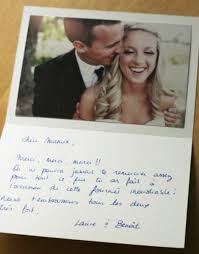 Cher Manu,
Merci, merci, merci !!
On ne pourra jamais te remercier assez
pour tout ce que tu as fait à
l'occasion de cette journée inoubliable !
Nous t'embrassons tous les deux
très fort.
Laure & Benoît